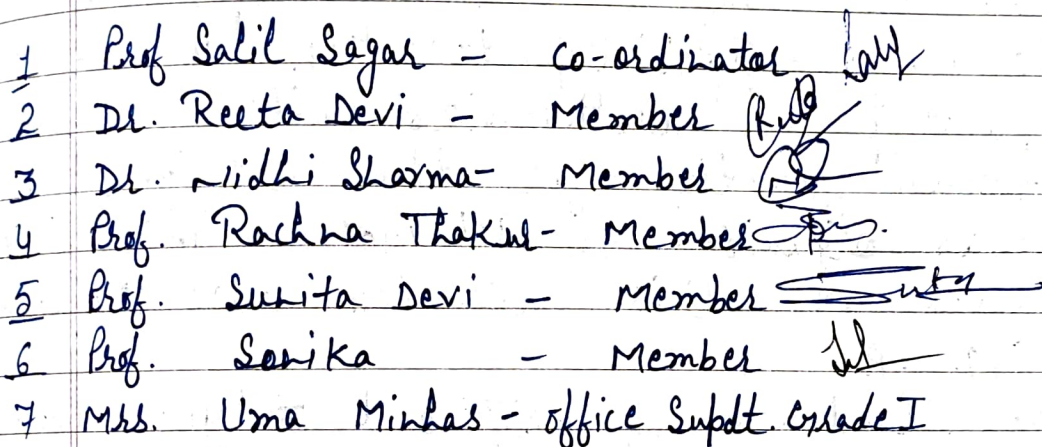 1 Prof Salil Sagar - Co-ordinator
2 Dr. Reeta Devi - Member
3 Dr. Nidhi Sharma - Member
4 Prof. Rachna Thakur - Member
5 Prof. Sunita Devi - Member
6 Prof. Sonika - Member
7. Mrs. Uma Minhas - office Supdt. Grade I